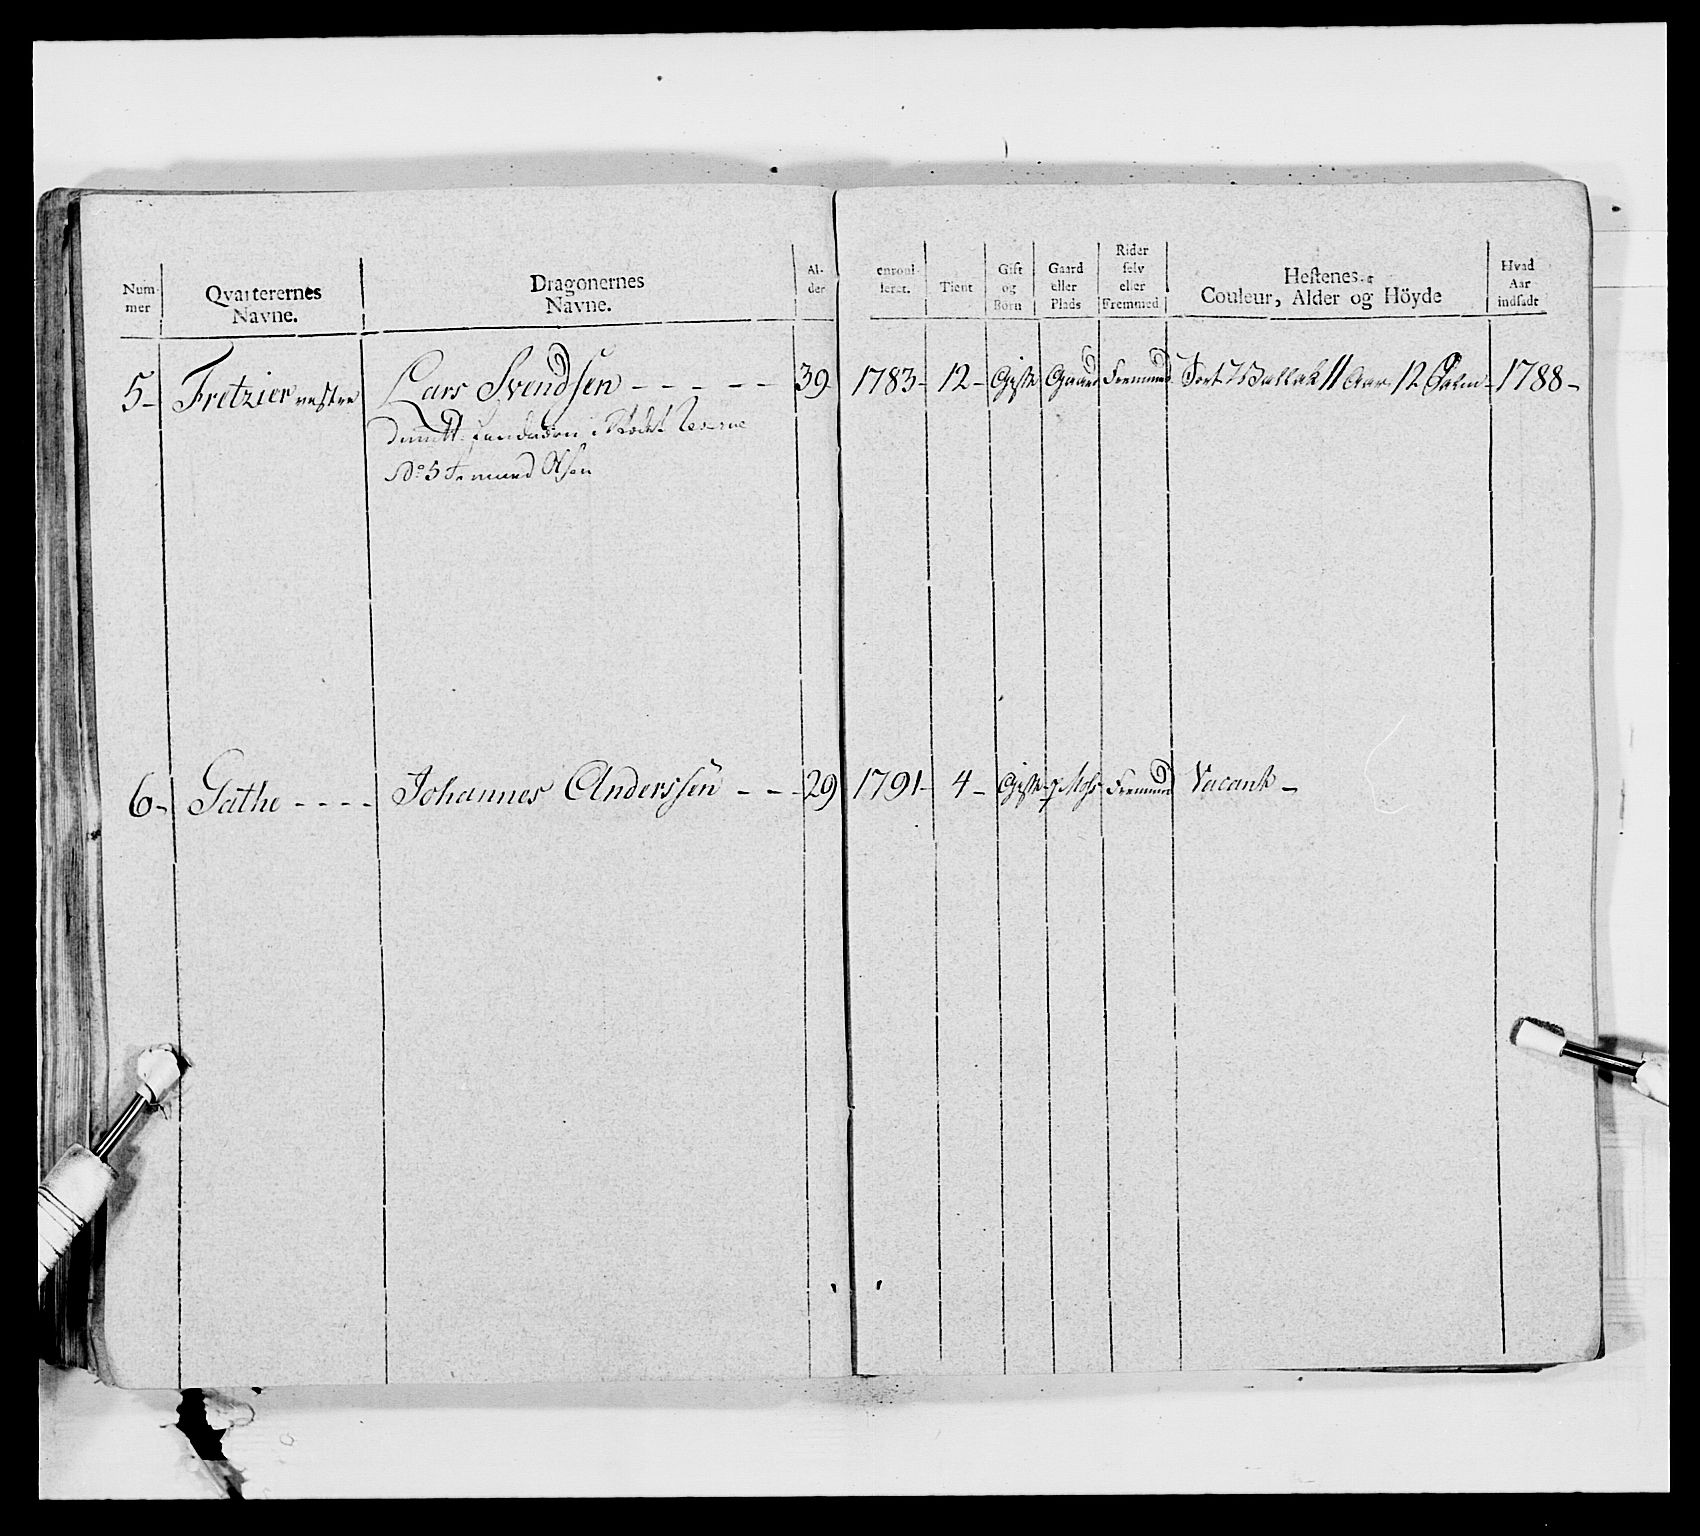 Num-
mer
Qvarterernes
Navne.
Dragonernes
Navne.
Al-
der
enroul-
leret.
Tient
Gift
og
Börn
Gaard
eller
Plads
Rider
selv
eller
Fremmed
Hestenes
Couleur, Alder og Höyde
Hvad
Aar
indsadt
5- Fretzier vestre Lars Svendsen ----- 39 1783- 12- Gift Gaard Fremmed Sort Vallak 11 Aar 12 Palm- 1788-
i Stedet
No 5 Olsen
6- Gathe ---- Johannes Anderssen --- 29 1791- 4- Gift Fremmed Vacant-